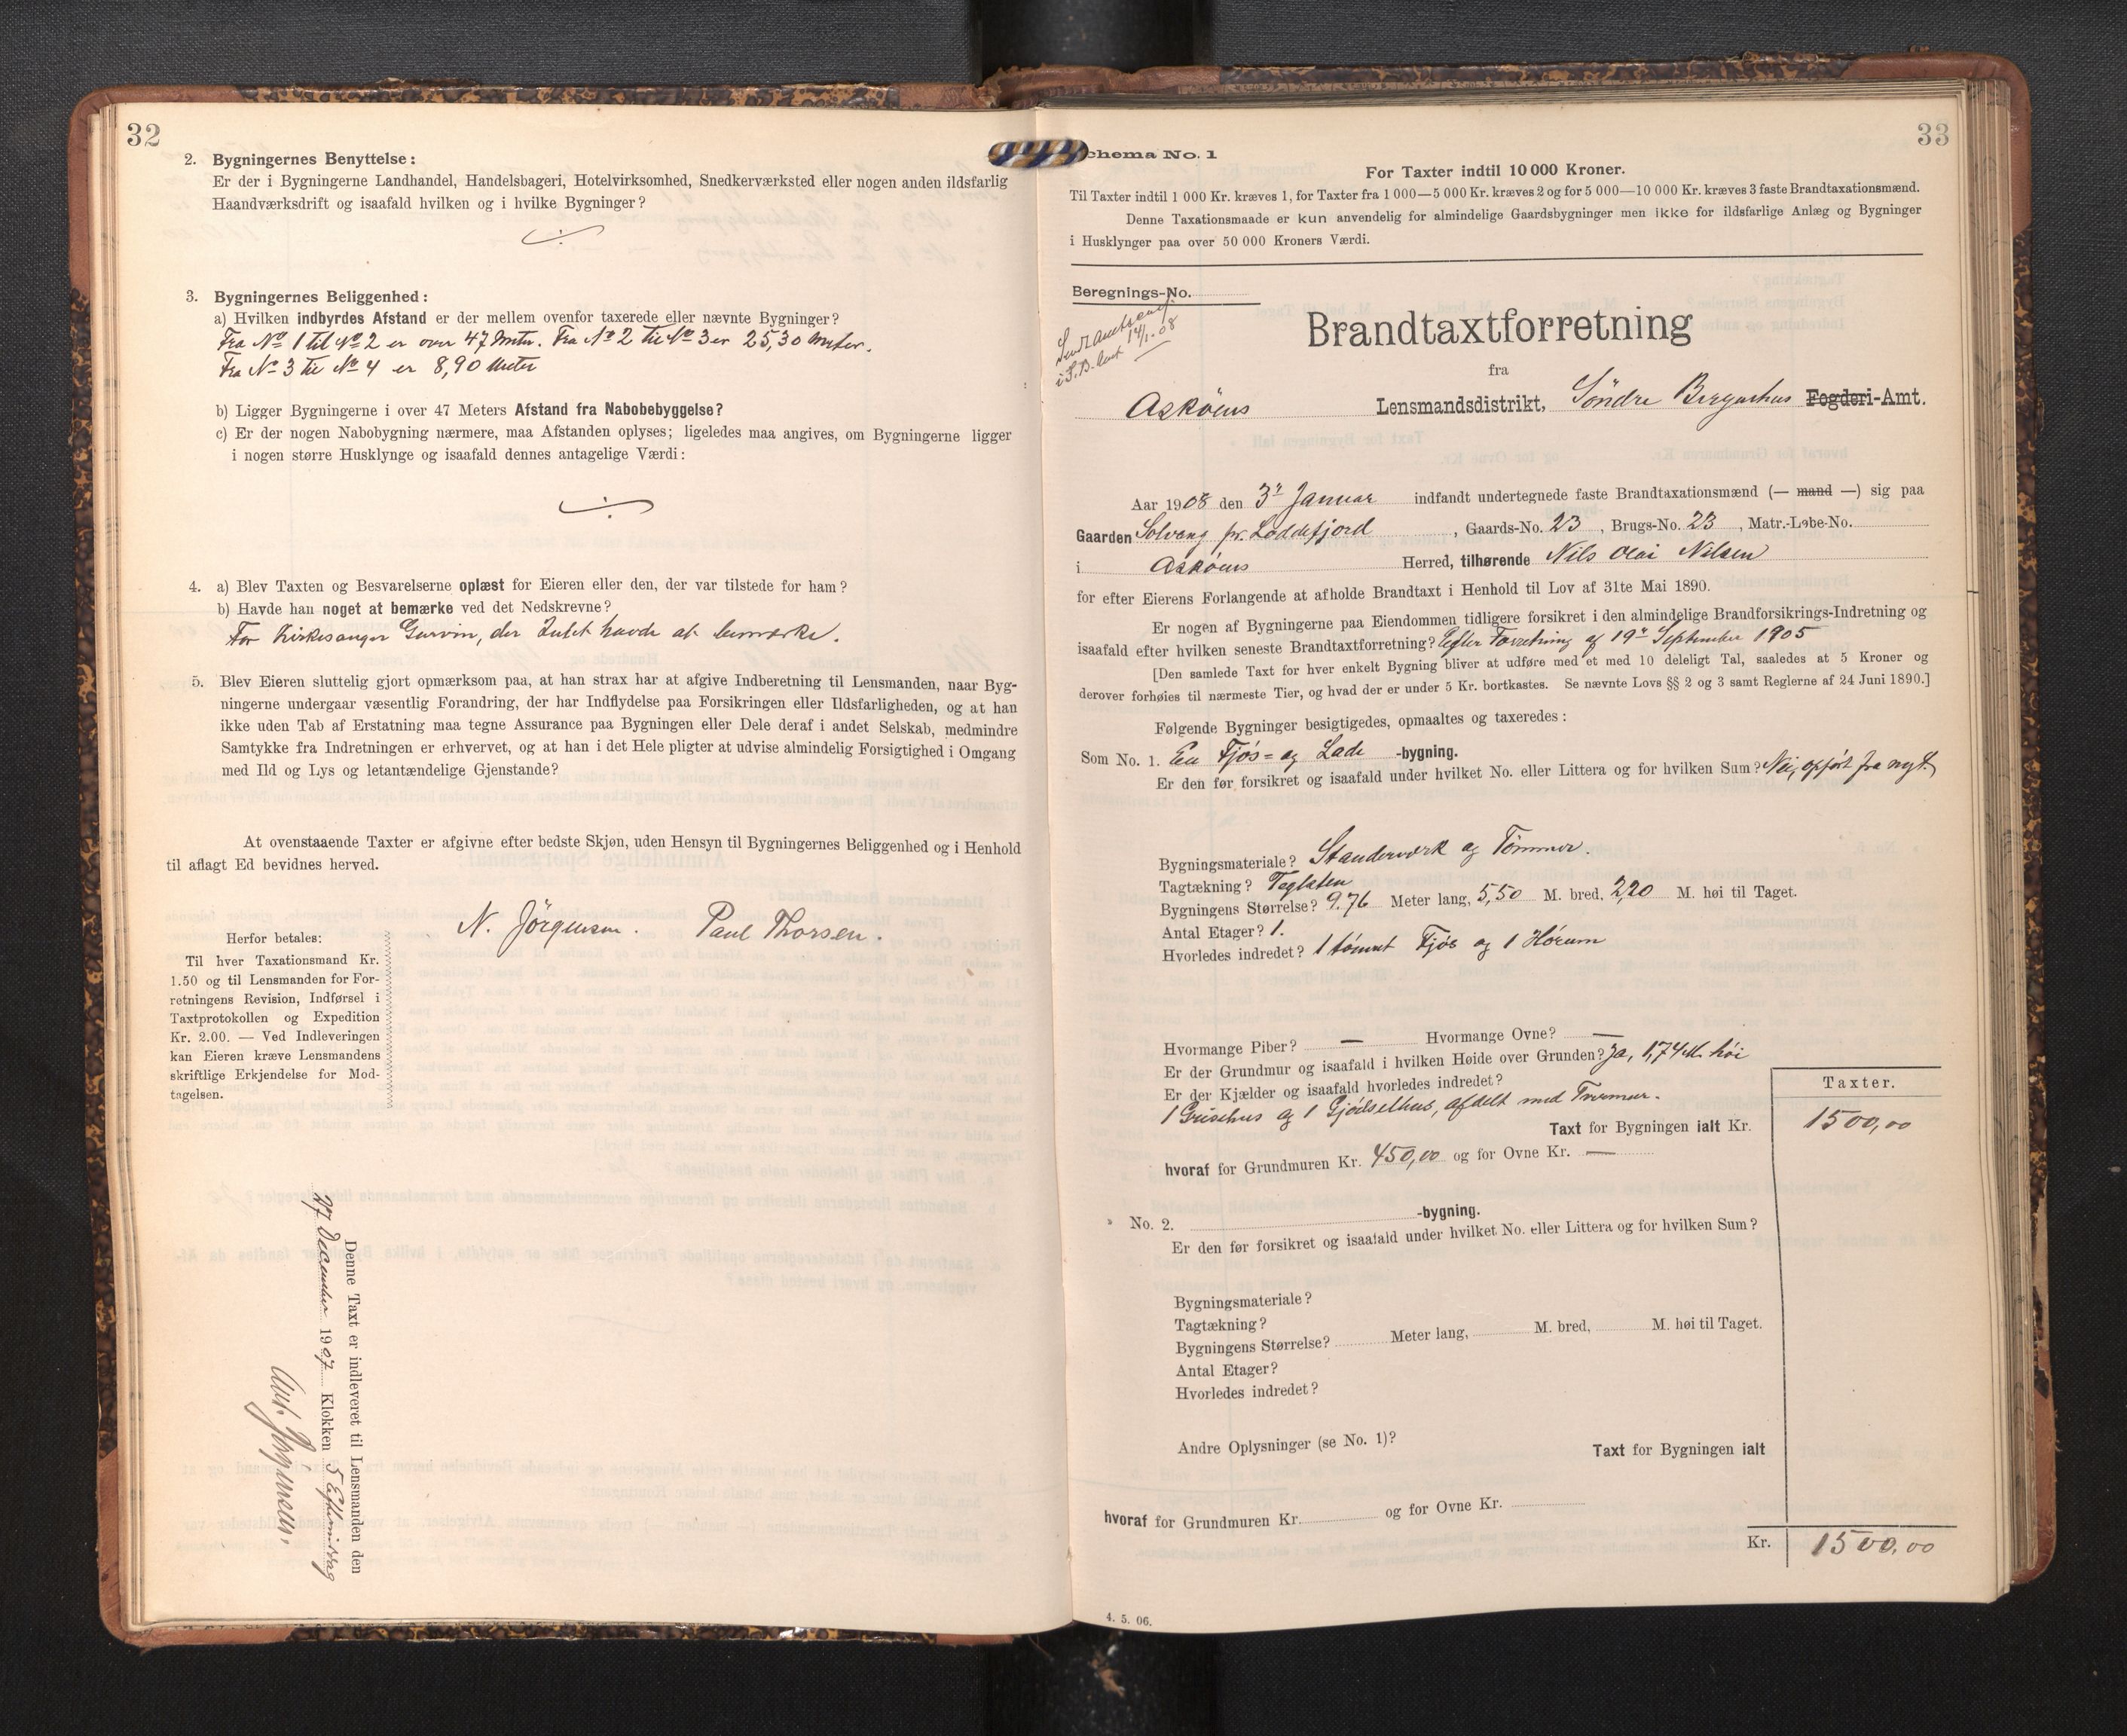 32
2. Bygningernes Benyttelse:
Er der i Bygningerne Landhandel, Handelsbageri, Hotelvirksomhed, Snedkerværksted eller nogen anden ildsfarlig
Haandværksdrift og isaafald hvilken og i hvilke Bygninger?
3. Bygningernes Beliggenhed:
a) Hvilken indbyrdes Afstand er der mellem ovenfor taxerede eller nævnte Bygninger?
Fra No 1 til No 2 er over 47 Meter. Fra No 2 til No 3 er 25,30 Meter.
Fra No 3 til No 4 er 8,90 Meter
b) Ligger Bygningerne i over 47 Meters Afstand fra Nabobebyggelse?
c) Er der nogen Nabobygning nærmere, maa Afstanden oplyses; ligeledes maa angives, om Bygningerne ligger
i nogen større Husklynge og isaafald dennes antagelige Værdi:
4. a) Blev Taxten og Besvarelserne oplæst for Eieren eller den, der var tilstede for ham?
b) Havde han noget at bemærke ved det Nedskrevne?
For Kirkesanger Gurvin, der Intet havde at bemærke.
5. Blev Eieren sluttelig gjort opmærksom paa, at han strax har at afgive Indberetning til Lensmanden, naar Byg-
ningerne undergaar væsentlig Forandring, der har Indflydelse paa Forsikringen eller Ildsfarligheden, og at han
ikke uden Tab af Erstatning maa tegne Assurance paa Bygningen eller Dele deraf i andet Selskab, medmindre
Samtykke fra Indretningen er erhvervet, og at han i det Hele pligter at udvise almindelig Forsigtighed i Omgang
med Ild og Lys og letantændelige Gjenstande?
At ovenstaaende Taxter er afgivne efter bedste Skjøn, uden Hensyn til Bygningernes Beliggenhed og i Henhold
til aflagt Ed bevidnes herved.
N. Jörgensen. Paul Thorsen.
Herfor betales:
Til hver Taxationsmand Kr.
1.50 og til Lensmanden for For-
retningens Revision, Indførsel i
Taxtprotokollen og Expedition
Kr. 2.00. — Ved Indleveringen
kan Eieren kræve Lensmandens
skriftlige Erkjendelse for Mod-
tagelsen.
Denne Taxt er indleveret til Lensmanden den
27 December 1907 Klokken 5 Eftermiddag
33
chema No. 1
For Taxter indtil 10 000 Kroner.
Til Taxter indtil 1 000 Kr. kræves 1, for Taxter fra 1 000—5 000 Kr. kræves 2 og for 5 000—10 000 Kr. kræves 3 faste Brandtaxationsmænd.
Denne Taxationsmaade er kun anvendelig for almindelige Gaardsbygninger men ikke for ildsfarlige Anlæg og Bygninger
i Husklynger paa over 50 000 Kroners Værdi.
Beregnings-No.
14/1. 08
Brandtaxtforretning
fra
Askøens Lensmandsdistrikt, Söndre Bergenhus Fogderi-Amt.
Aar 1908 den 3' Januar indfandt undertegnede faste Brandtaxationsmænd (— mand —) sig paa
Gaarden Solvang pr. Loddefjord, Gaards-No. 23, Brugs-No. 23, Matr.-Løbe-No.
i Askøens Herred, tilhørende Nils Olai Nilsen
for efter Eierens Forlangende at afholde Brandtaxt i Henhold til Lov af 31te Mai 1890.
Er nogen af Bygningerne paa Eiendommen tidligere forsikret i den almindelige Brandforsikrings-Indretning og
isaafald efter hvilken seneste Brandtaxtforretning? Efter Forretning af 19' September 1905
[Den samlede Taxt for hver enkelt Bygning bliver at udføre med et med 10 deleligt Tal, saaledes at 5 Kroner og
derover forhøies til nærmeste Tier, og hvad der er under 5 Kr. bortkastes. Se nævnte Lovs §§ 2 og 3 samt Reglerne af 24 Juni 1890.]
Følgende Bygninger besigtigedes, opmaaltes og taxeredes:
Som No. 1. En Fjøs= og Lade -bygning.
Er den før forsikret og isaafald under hvilket No. eller Littera og for hvilken Sum? Nei, opført fra nyt.
Bygningsmateriale? Standerværk og Tømmer.
Tagtækning? Taglsten
Bygningens Størrelse? 9.76 Meter lang, 5,50 M. bred, 2,20 M. høi til Taget.
Antal Etager? 1.
Hvorledes indredet? 1 tømret Fjøs og 1 Hørum
Hvormange Piber? — Hvormange Ovne? —
Er der Grundmur og isaafald i hvilken Høide over Grunden? Ja, 1,74 M. høi
Er der Kjælder og isaafald hvorledes indredet?
1 Grisehus og 1 Gjødselhus, afdelt med Tvermur.
Taxter.
Taxt for Bygningen ialt Kr. 1500,00
hvoraf for Grundmuren Kr. 450,00 og for Ovne Kr. —
No. 2. -bygning.
Er den før forsikret og isaafald under hvilket No. eller Littera og for hvilken Sum?
Bygningsmateriale?
Tagtækning?
Bygningens Størrelse? Meter lang, M. bred, M. høi til Taget.
Antal Etager?
Hvorledes indredet?
Andre Oplysninger (se No. 1)?
Taxt for Bygningen ialt
hvoraf for Grundmuren Kr. og for Ovne Kr.
Kr. 1500,00
4. 5. 06.